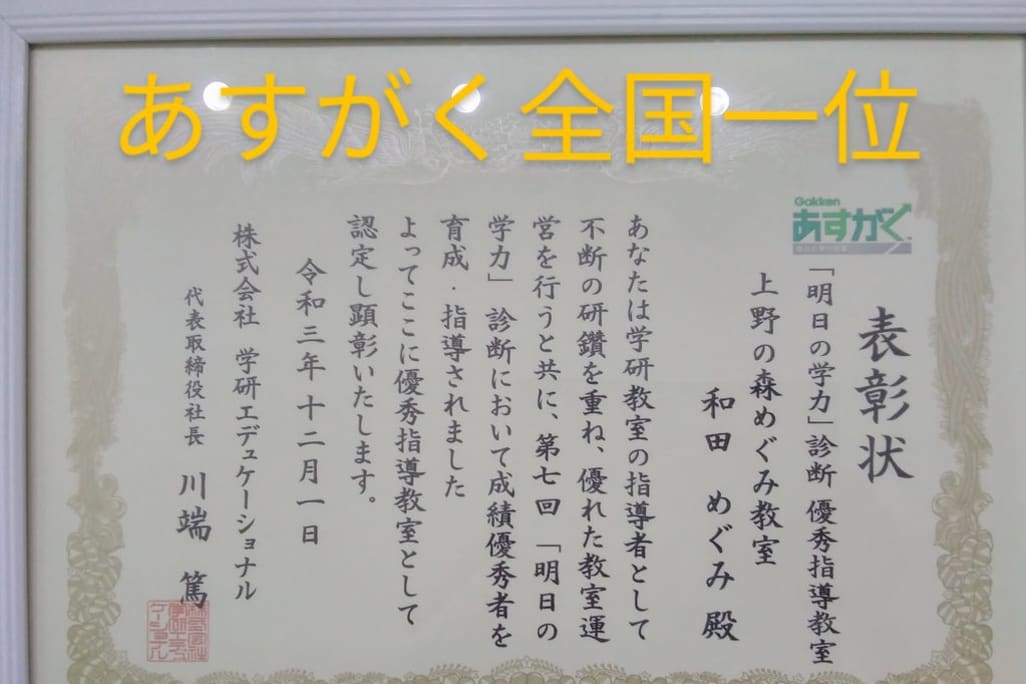 あすがく全国一位
Gakken
あすがく
表彰状
「明日の学力」診断 優秀指導教室
上野の森めぐみ教室
和田 めぐみ 殿
あなたは学研教室の指導者として
不断の研鑽を重ね、優れた教室運
営を行うと共に、第七回「明日の
学力」診断において成績優秀者を
育成・指導されました
よってここに優秀指導教室として
認定し顕彰いたします。
令和三年十二月一日
株式会社 学研エデュケーショナル
代表取締役社長 川端 篤